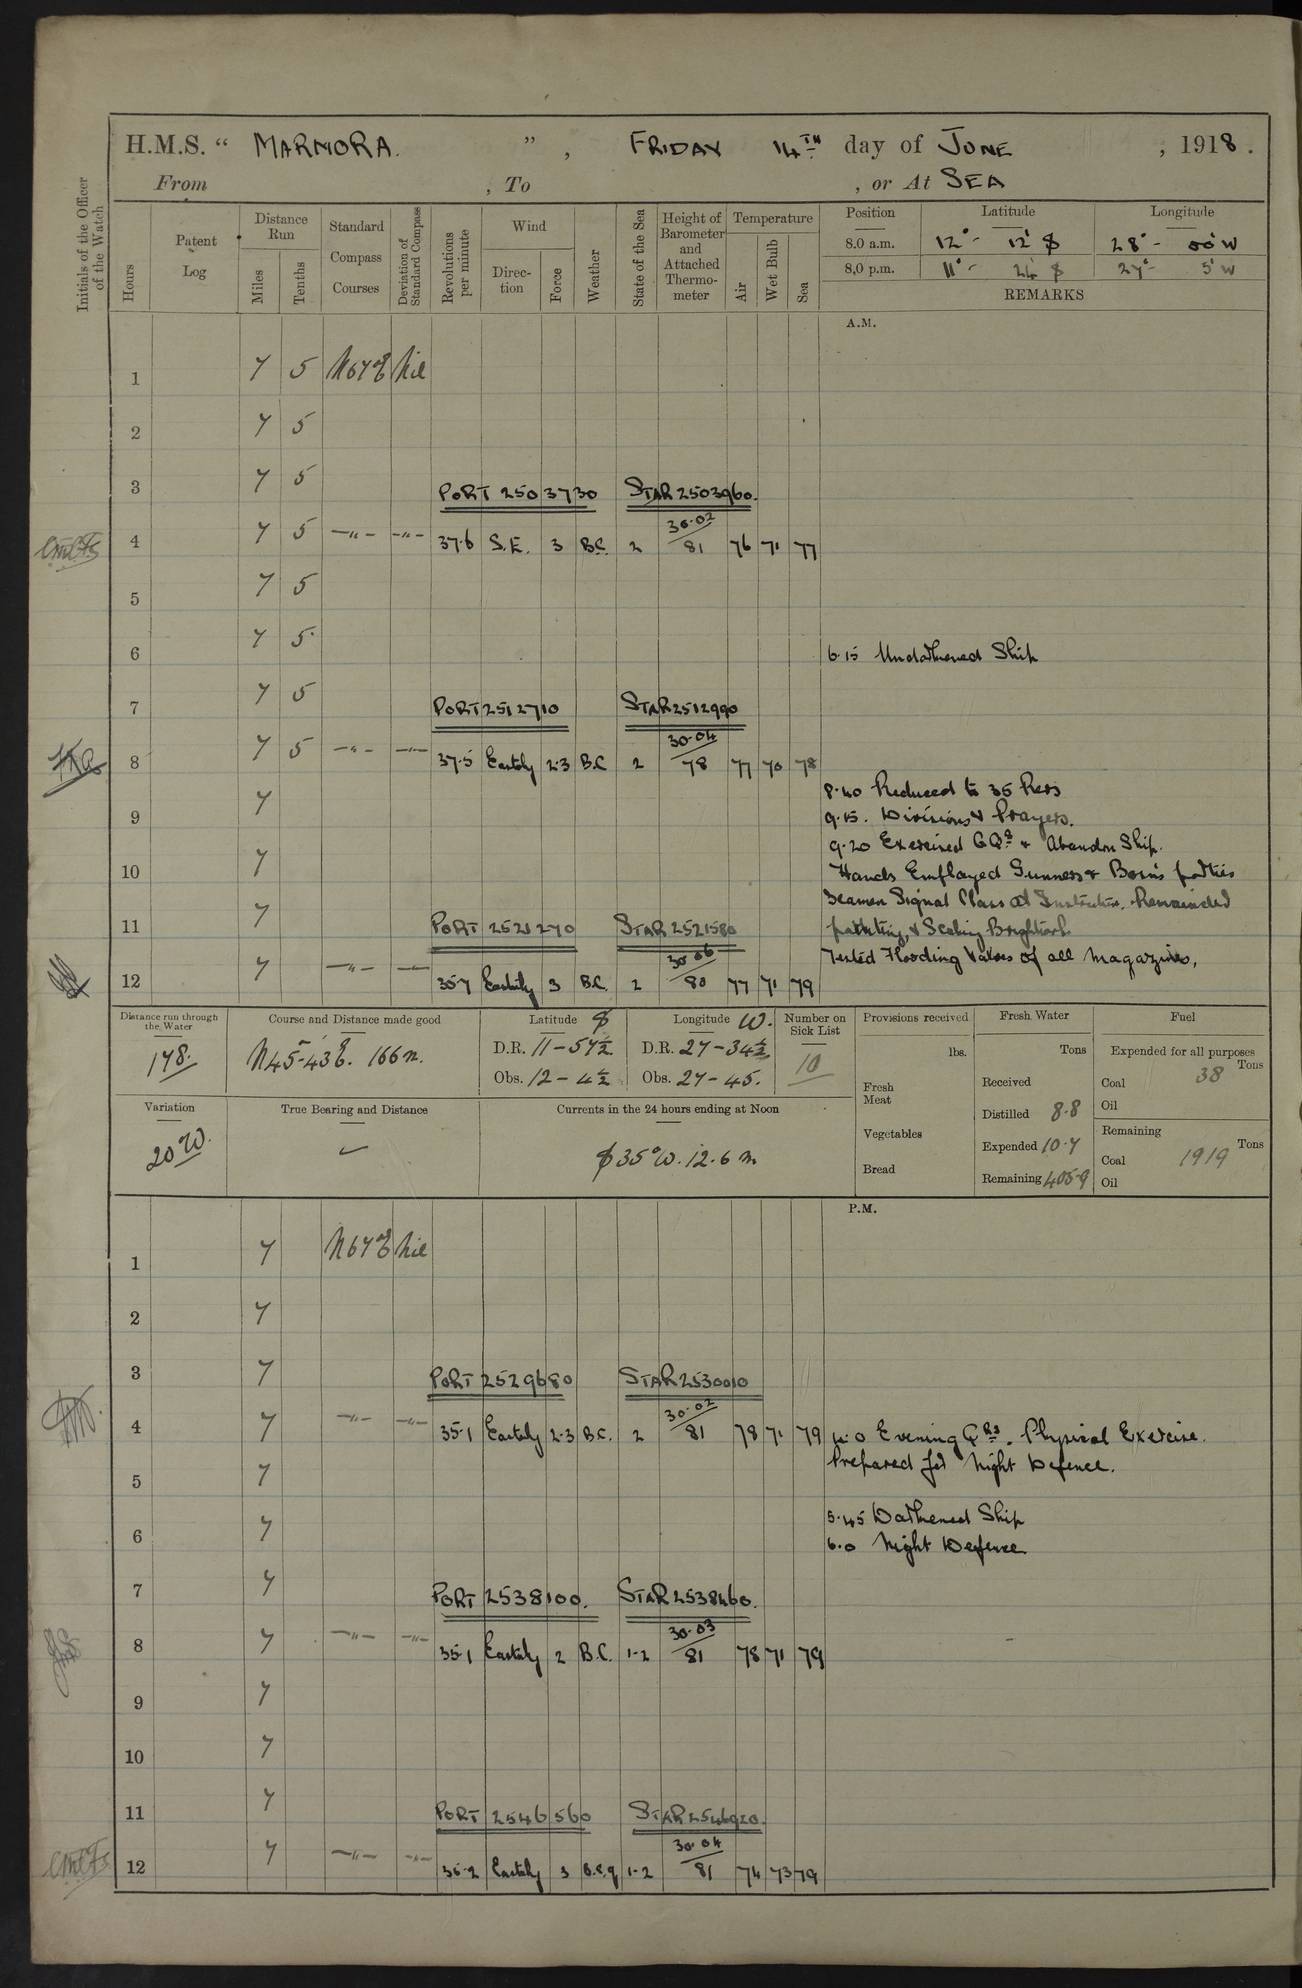 H.M.S. " MARMORA. ", FRIDAY 14TH day of JUNE, 1918.
From , To , or At SEA
Initials of the Officer of the Watch
Hours
Patent Log
Distance Run
Miles
Tenths
Standard Compass Courses
Deviation of Standard Compass
Revolutions per minute
Wind
Direction
Force
Weather
State of the Sea
Height of Barometer and Attached Thermometer
Temperature
Air
Wet Bulb
Sea
Position Latitude Longitude
8.0 a.m. 12° - 12' S 28° - 00' W
8.0 p.m. 11° - 24' S 27° - 5' W
REMARKS
A.M.
1 7 5 N67°E Nil
2 7 5
3 7 5
PORT 2503730 STAR 2503960.
4 7 5 -"- -"- 37.6 S.E. 3 B.C. 2 30.02/81 76 71 77
5 7 5
6 7 5
6.15 Undarkened Ship
7 7 5
PORT 2512710 STAR 2512990
8 7 5 -"- -"- 37.5 Eastely 2.3 B.C 2 30.04/78 77 70 78
8.40 Reduced to 35 Revs
9 7
9.15. Divisions & Prayers.
9.20 Exercised GQrs & Abandon Ship.
10 7
Hands Employed Gunners & Bosns parties
Seamen Signal Class at Instruction. Remainder
11 7
painting, & Scaling Brightwork
PORT 2521270 STAR 2521580
Tested Flooding Valves of all Magazines,
12 7 -"- -"- 35.7 Easterly 3 B.C. 2 30.06/80 77 71 79
Distance run through the Water
178.
Course and Distance made good
N45-43E. 166 m.
Latitude S
D.R. 11-57½
Obs. 12-4½
Longitude W.
D.R. 27-34½
Obs. 27-45.
Number on Sick List
10
Provisions received
lbs.
Fresh Meat
Vegetables
Bread
Fresh Water
Tons
Received
Distilled 8.8
Expended 10.7
Remaining 405.9
Fuel
Expended for all purposes
Tons
Coal 38
Oil
Remaining
Tons
Coal 1919
Oil
Variation
20°W.
True Bearing and Distance
Currents in the 24 hours ending at Noon
S 35°W. 12.6 m.
P.M.
1 7 N67°E Nil
2 7
3 7
PORT 2529680 STAR 2530010
4 7 -"- -"- 35.1 Eastely 2.3 B.C. 2 30.02/81 78 71 79
4.0 Evening QRS. Physical Exercise.
Prepared for Night Defence.
5 7
5.45 Darkened Ship
6 7
6.0 Night Defence
7 7
PORT 2538100. STAR 2538460.
8 7 -"- -"- 35.1 Eastely 2 B.C. 1-2 30.03/81 78 71 79
9 7
10 7
11 7
PORT 2546560 STAR 2546920.
12 7 -"- -"- 35.2 Eastely 3 B.C.q 1-2 30.04/81 74 73 79